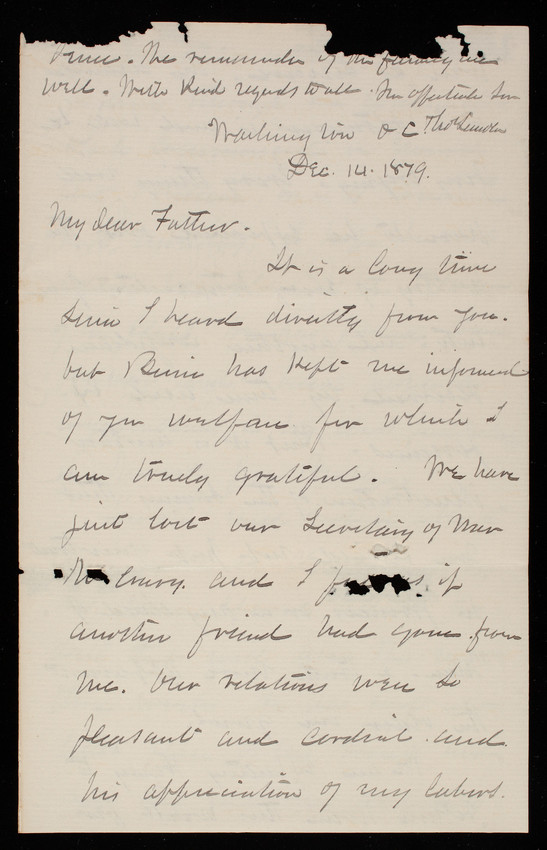 The remainder of the family are
well. With kind regards to all. Your affectionate Son
Washington D C Thos
Dec. 14. 1879.
My dear Father.
It is a long time
since I heard directly from you.
but has kept me informed
of your welfare for which I
am truely grateful. We have
just lost our Secretary of War
and I if
another friend had gone from
me. Our relations were so
pleasant and cordial. and
his appreciation of my labors.